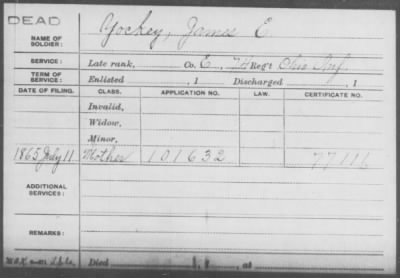 DEAD
NAME OF SOLDIER: Yockey, James E.
SERVICE: Late rank, Co. E, 74 Reg't Ohio Inf.
TERM OF SERVICE: Enlisted , 1 Discharged , 1
DATE OF FILING. CLASS. APPLICATION NO. LAW. CERTIFICATE NO.
Invalid,
Widow,
Minor,
1865 July 11 Mother 101632 77116
ADDITIONAL SERVICES:
REMARKS:
Died , 1 , at